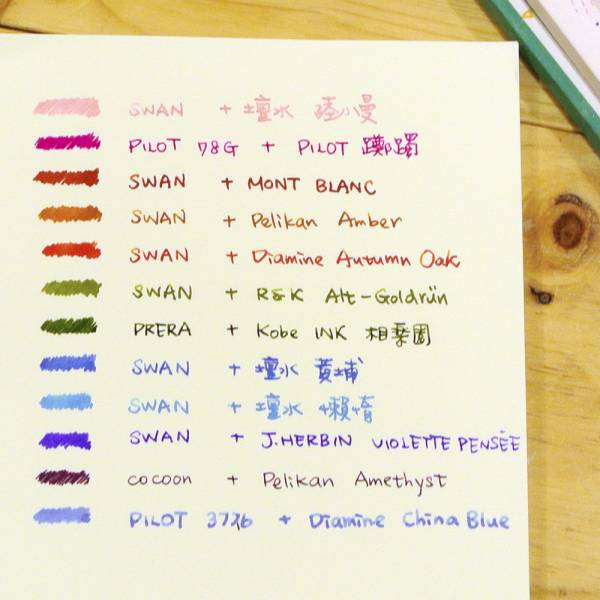 SWAN + 壇水 陸小曼
PILOT 78G + PILOT 躑躅
SWAN + MONT BLANC
SWAN + Pelikan Amber
SWAN + Diamine Autumn Oak
SWAN + R&K Alt-Goldrün
PRERA + Kobe INK 相楽園
SWAN + 壇水 黃埔
SWAN + 壇水 懶惰
SWAN + J.HERBIN VIOLETTE PENSÉE
COCOON + Pelikan Amethyst
PILOT 3776 + Diamine China Blue